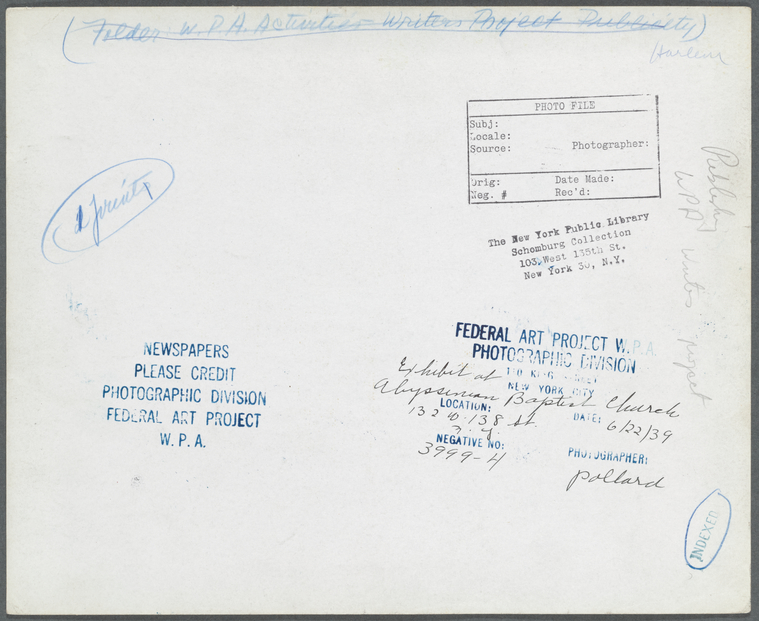 (Folder: W.P.A. Activities - Writers Project Publicity)
Harlem
PHOTO FILE
Subj:
Locale:
Source: Photographer:
Orig: Date Made:
Neg. # Rec'd:
prints
Publishing
WPA Writers project
The New York Public Library
Schomburg Collection
103 West 135th St.
New York 30, N.Y.
NEWSPAPERS
PLEASE CREDIT
PHOTOGRAPHIC DIVISION
FEDERAL ART PROJECT
W.P.A.
FEDERAL ART PROJECT W.P.A.
PHOTOGRAPHIC DIVISION
110 KING STREET
NEW YORK CITY
Exhibit at
Abyssinian Baptist Church
LOCATION: DATE: 6/22/39
132 W. 138 St.
N.Y.
NEGATIVE NO: PHOTOGRAPHER:
3999-4 Pollard
INDEXED